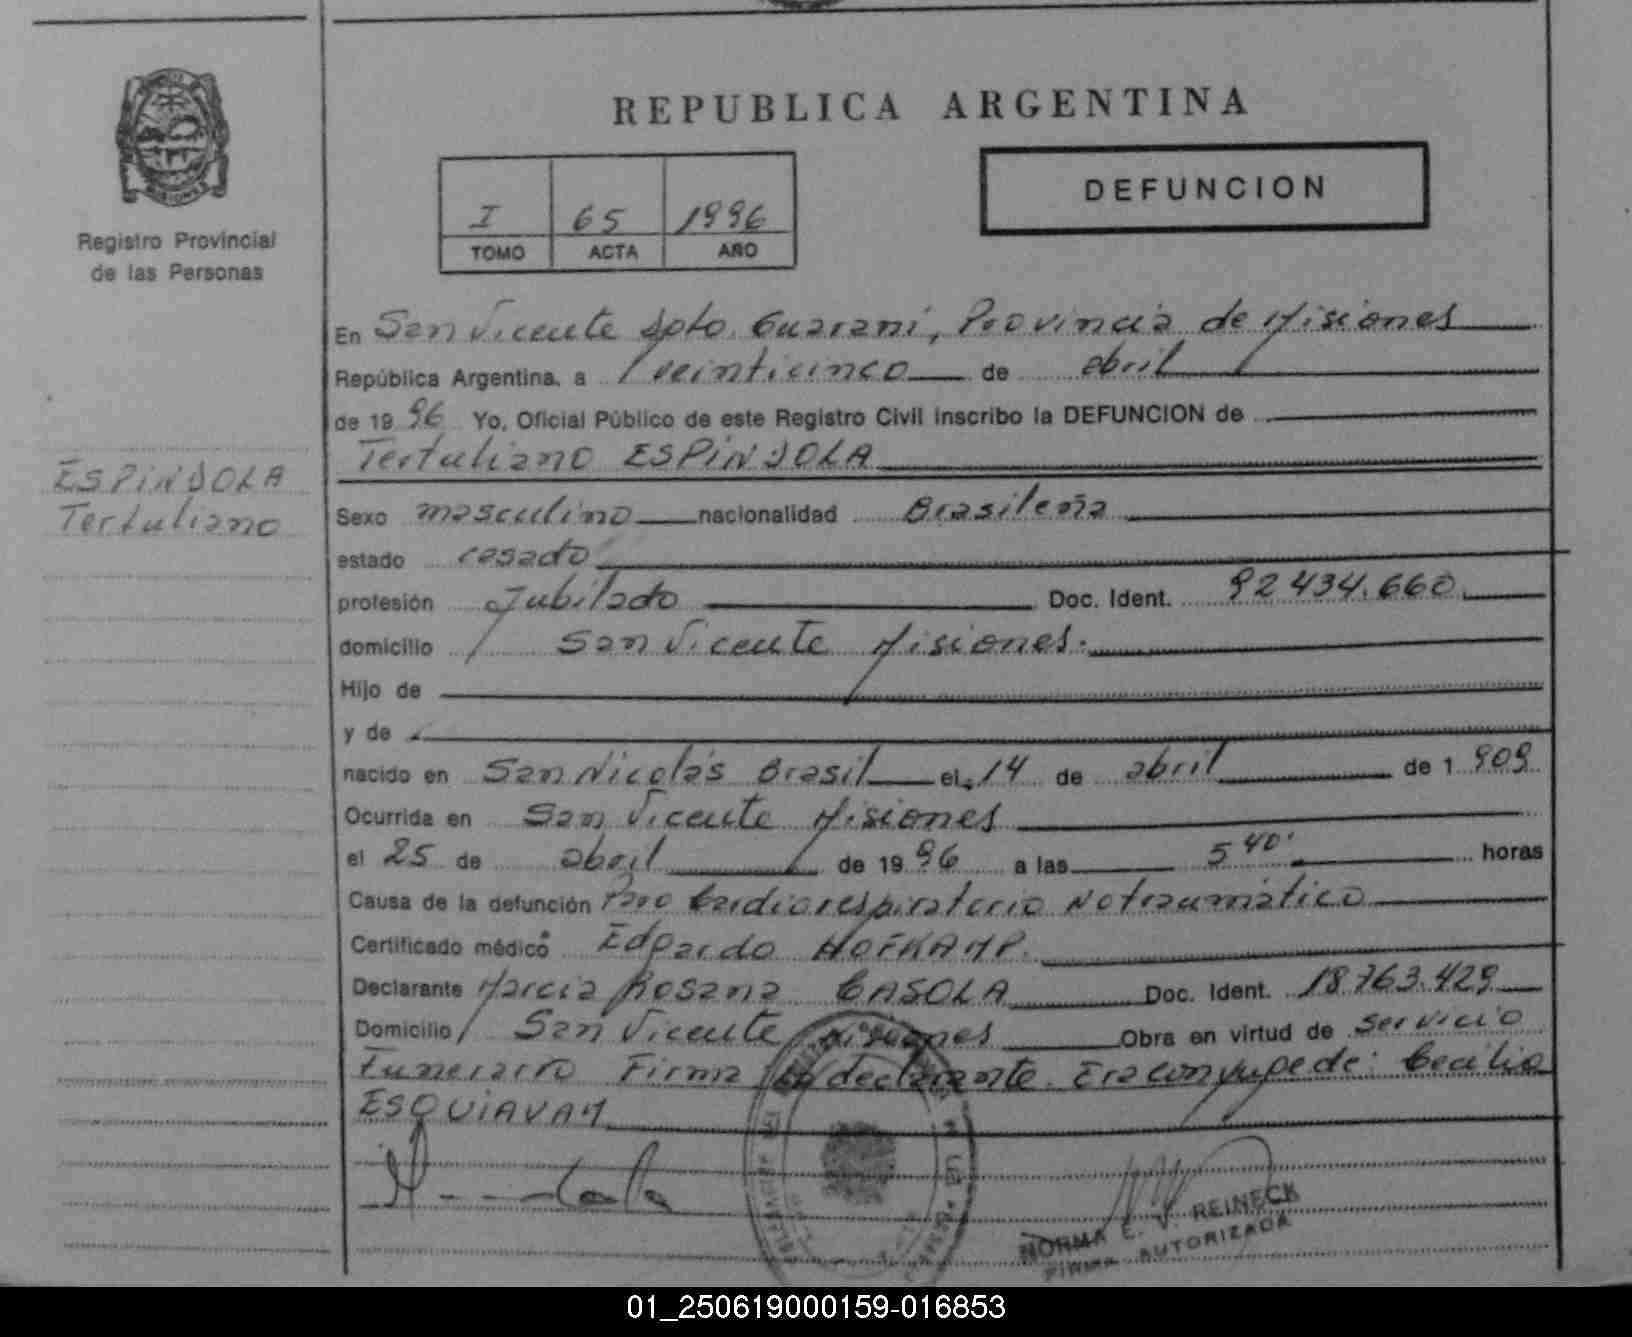 REPUBLICA ARGENTINA
DEFUNCION
I 65 1996
TOMO ACTA AÑO
MISIONES
Registro Provincial
de las Personas
ESPINDOLA
Tertuliano
En San Vicente Dpto. Guaraní, Provincia de Misiones
República Argentina, a veinticinco de abril
de 1996 Yo, Oficial Público de este Registro Civil inscribo la DEFUNCION de
Tertuliano ESPINDOLA
Sexo masculino nacionalidad Brasileña
estado casado
profesión Jubilado Doc. Ident. 92 434.660
domicilio San Vicente Misiones.
Hijo de
y de
nacido en San Nicolás Brasil el 14 de abril de 1 909
Ocurrida en San Vicente Misiones
el 25 de abril de 1996 a las 5 40' horas
Causa de la defunción Paro Cardiorespiratorio No traumático
Certificado médico Edgardo HOFKAMP.
Declarante Marcia Rosana CASOLA Doc. Ident. 18.763.429
Domicilio San Vicente Misiones Obra en virtud de servicio
Funerario Firma la declarante. Era conyuge de: Cecilia
ESQUIAVAM
NORMA E. V. REINECK
FIRMA AUTORIZADA
01_250619000159-016853